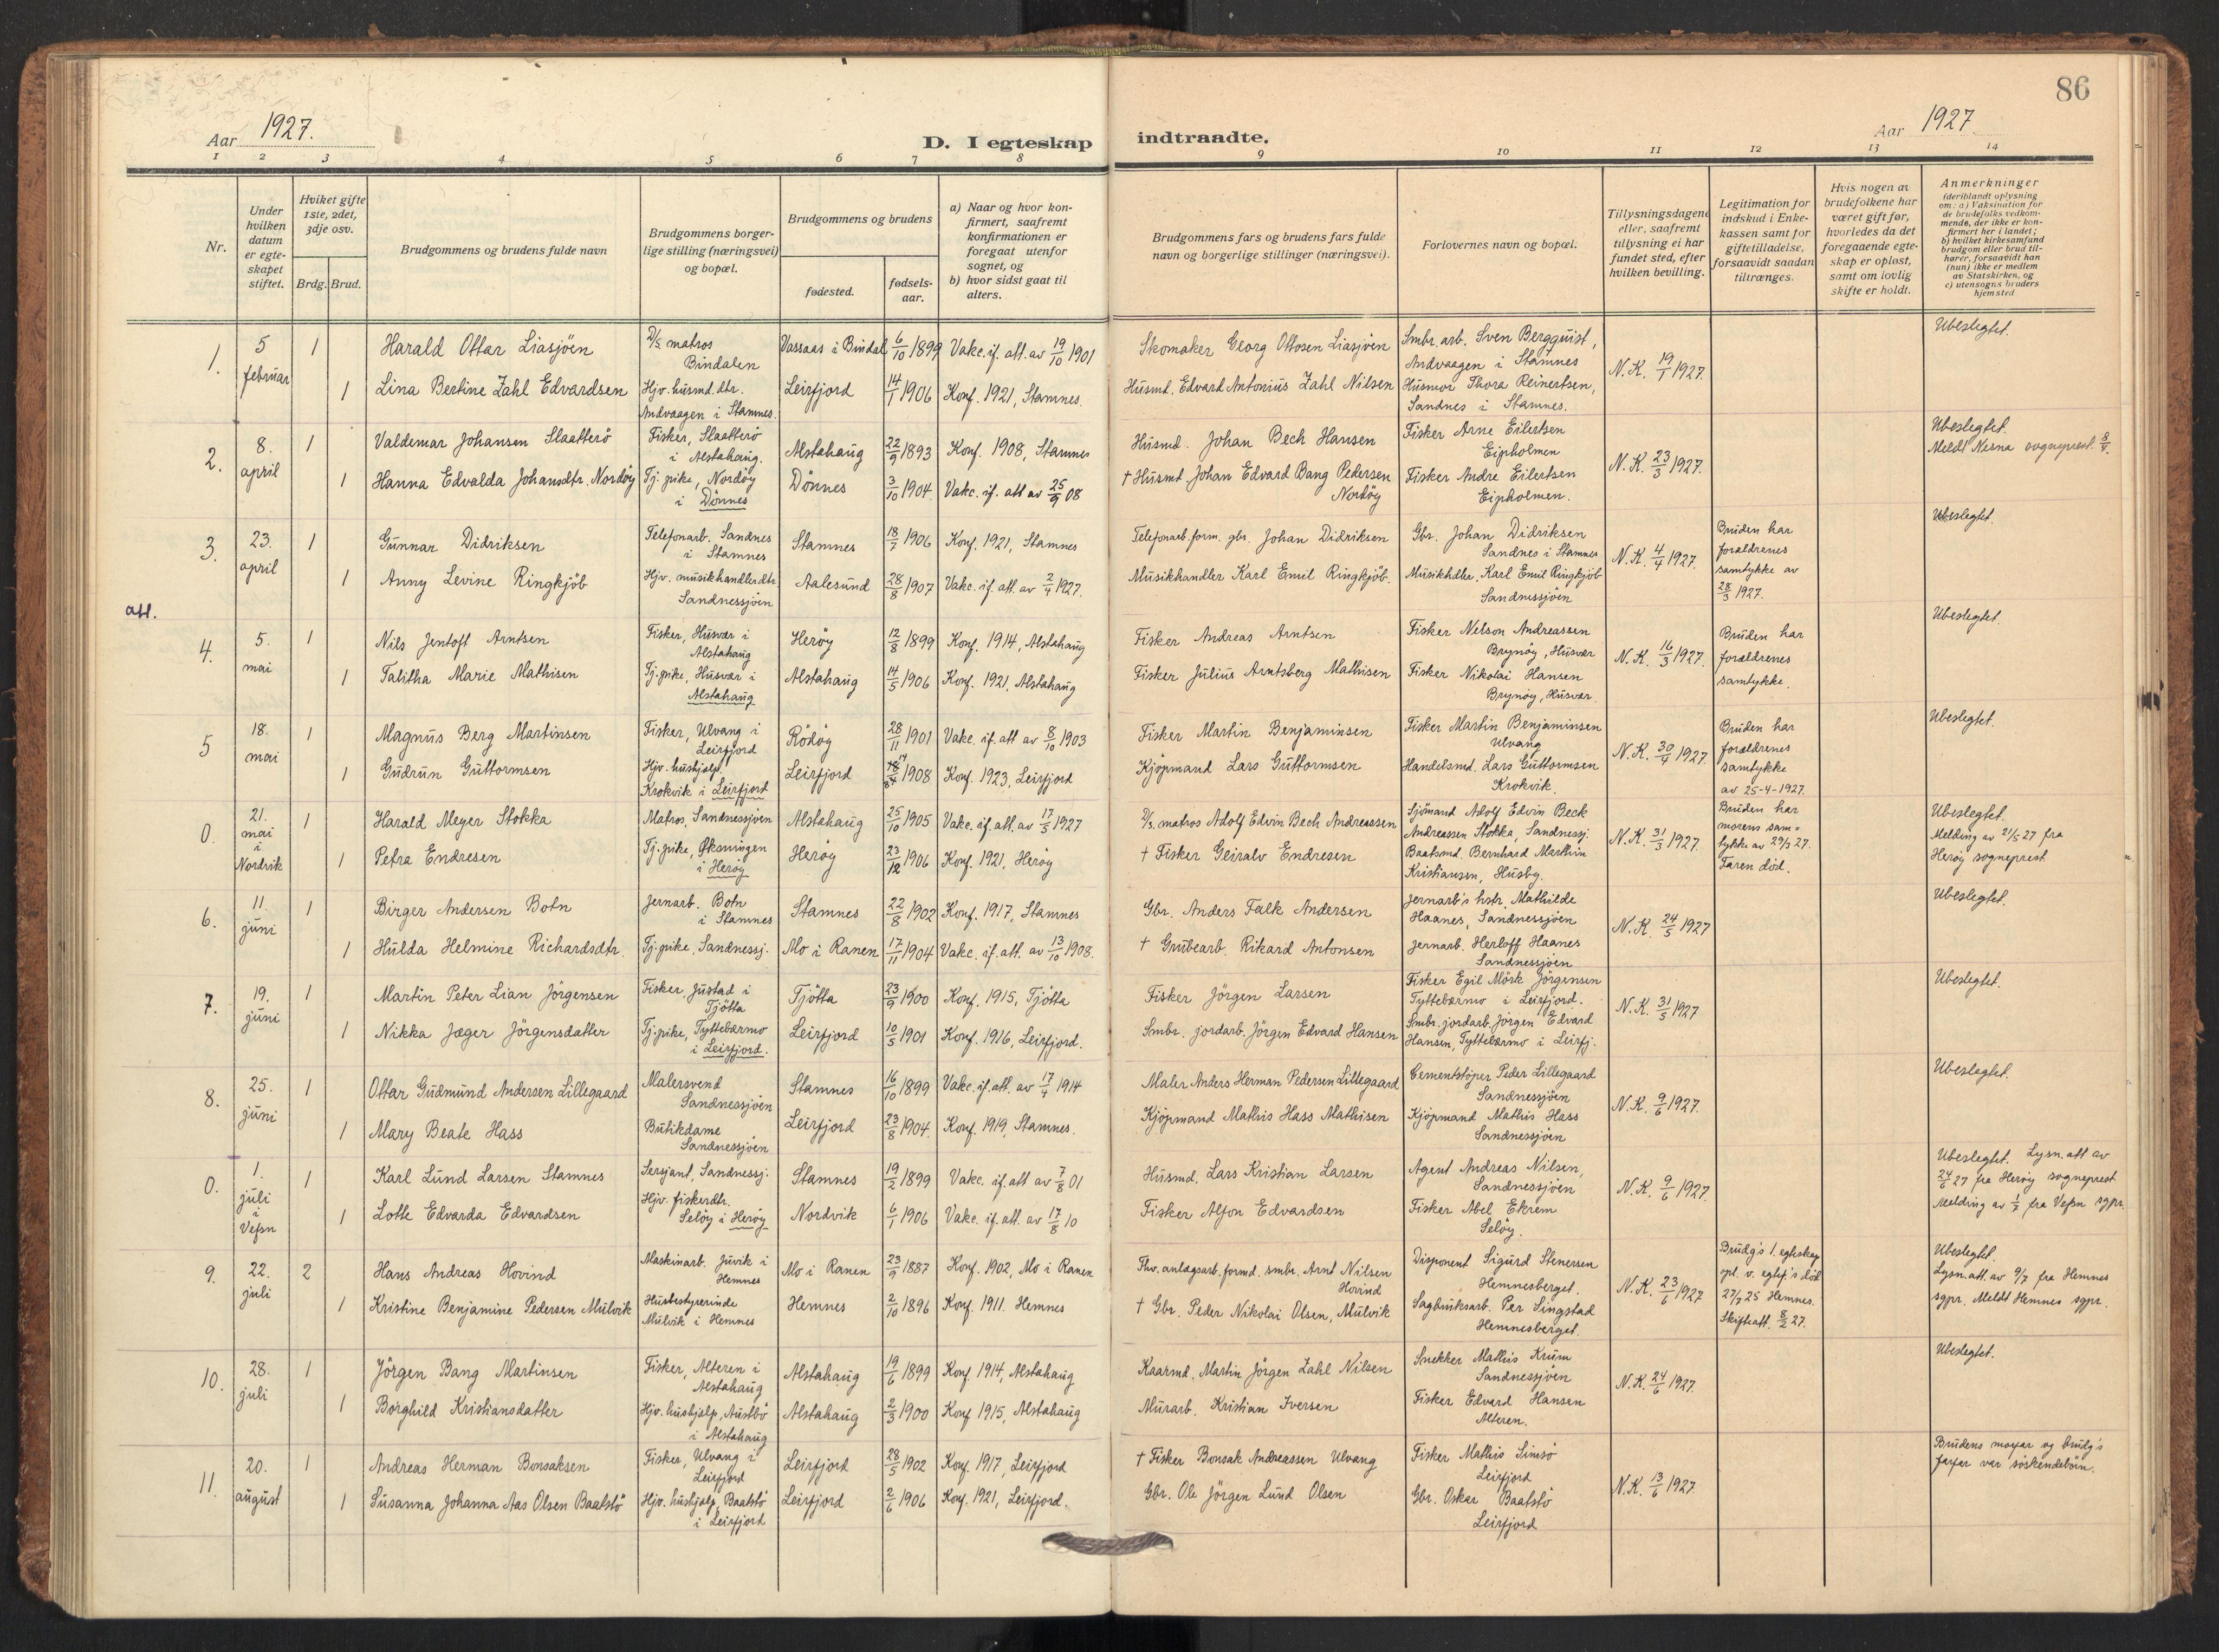 86
Aar 1927.
D. I egteskap indtraadte.
Aar 1927
1 2 3 4 5 6 7 8 9 10 11 12 13 14
Nr.
Under hvilken datum er egteskapet stiftet.
Hviket gifte 1ste, 2det, 3dje osv.
Brdg. Brud.
Brudgommens og brudens fulde navn
Brudgommens borgerlige stilling (næringsvei) og bopæl.
Brudgommens og brudens
fødested.
fødselsaar.
a) Naar og hvor konfirmert, saafremt konfirmationen er foregaat utenfor sognet, og
b) hvor sidst gaat til alters.
Brudgommens fars og brudens fars fulde navn og borgerlige stillinger (næringsvei).
Forlovernes navn og bopæl.
Tillysningsdagene eller, saafremt tillysning ei har fundet sted, efter hvilken bevilling.
Legitimation for indskud i Enkekassen samt for giftetilladelse, forsaavidt saadan tiltrænges.
Hvis nogen av brudefolkene har været gift før, hvorledes da det foregaaende egteskap er opløst, samt om lovlig skifte er holdt.
Anmerkninger (deriblandt oplysning om: a) Vaksination for de brudefolks vedkommende, der ikke er konfirmert her i landet; b) hvilket kirkesamfund brudgom eller brud tilhører, forsaavidt han (hun) ikke er medlem av Statskirken, og c) utensogns bruders hjemsted
1. 5 februar 1 Harald Ottar Liasjöen D/s matros Bindalen Vassaas i Bindal 6/10 1899 Vakc. if. att. av 19/10 1901 Skomaker Georg Ottosen Liasjöen Smbr. arb. Sven Bergquist, Andvaagen i Stamnes N.K. 19/1 1927. Ubeslegtet.
1 Lina Bertine Zahl Edvardsen Hjv. husmd. dtr. Andvaagen i Stamnes. Leirfjord 14/1 1906 Konf. 1921, Stamnes. Husmd. Edvard Antonius Zahl Nilsen Husmor Thora Reinertsen, Sandnes i Stamnes.
2. 8. april 1 Valdemar Johansen Slaatterö Fisker, Slaatterö i Alstahaug. Alstahaug 22/9 1893 Konf. 1908, Stamnes Husmd. Johan Bech Hansen Fisker Arne Eilertsen Eipholmen N.K. 23/3 1927. Ubeslegtet. Meldt Nesna sogneprest 8/4.
1 Hanna Edvalda Johansdtr. Nordöy Tj. pike, Nordöy i Dönnes Dönnes 3/10 1904. Vakc. if. att av 25/9 08 † Husmd. Johan Edvard Bang Pedersen Nordöy Fisker Andre Eilertsen Eipholmen.
3. 23. april 1 Gunnar Didriksen Telefonarb. Sandnes i Stamnes Stamnes 18/7 1906 Konf. 1921, Stamnes Telefonarb. form. gbr. Johan Didriksen Gbr. Johan Didriksen Sandnes i Stamnes N.K. 4/4 1927. Bruden har forældrenes samtykke av 28/3 1927. Ubeslegtet.
1 Anny Levine Ringkjöb Hjv. musikhandlerdtr Sandnessjöen Aalesund 28/8 1907 Vakc. if. att. av 2/4 1927. Musikhandler Karl Emil Ringkjöb. Musikhdlr. Karl Emil Ringkjöb Sandnessjöen
att.
4. 5. mai 1 Nils Jentoft Arntsen Fisker, Husvær i Alstahaug Heröy 12/8 1899 Konf. 1914, Alstahaug Fisker Andreas Arntsen Fisker Nelson Andreassen Brynöy, Husvær N.K. 16/3 1927. Bruden har forældrenes samtykke. Ubeslegtet.
1 Talitha Marie Mathisen Tj. pike, Husvær i Alstahaug Alstahaug 14/5 1906 Konf. 1921, Alstahaug Fisker Julius Arntsberg Mathisen Fisker Nikolai Hansen Brynöy, Husvær
5 18. mai 1 Magnus Berg Martinsen Fisker, Ulvang i Leirfjord Rödöy 28/11 1901 Vakc. if. att av 8/10 1903 Fisker Martin Benjaminsen Fisker Martin Benjaminsen Ulvang N.K. 30/4 1927. Bruden har forældrenes samtykke av 25-4-1927. Ubeslegtet.
1 Gudrun Guttormsen Hjv. hushjelp. Krokvik i Leirfjord Leirfjord 1908 Konf. 1923, Leirfjord Kjöpmand Lars Guttormsen Handelsmd. Lars Guttormsen Krokvik.
0. 21. mai i Nordvik 1 Harald Meyer Stokka Matros, Sandnessjöen Alstahaug 25/10 1905 Vakc. if. att. av 17/5 1927 D/s. matros Adolf Edvin Bech Andreassen Sjömand Adolf Edvin Beck Andreassen Stokka, Sandnessj. N.K. 31/3 1927. Bruden har morens samtykke av 29/3 27. Faren död. Ubeslegtet. Melding av 21/5 27 fra Heröy sogneprest
1 Petra Endresen Tj. pike, Øksningen i Heröy Heröy 23/12 1906 Konf. 1921, Heröy † Fisker Geiralv Endresen Baatsmd. Bernhard Marthin Kristiansen, Husby.
6. 11. juni 1 Birger Andersen Botn Jernarb. Botn i Stamnes Stamnes 22/8 1902 Konf. 1917, Stamnes Gbr. Anders Falk Andersen Jernarb's hstr. Mathilde Haanes, Sandnessjöen N.K. 24/5 1927 Ubeslegtet.
1 Hulda Helmine Richardsdtr. Tj. pike, Sandnessj. Mo i Ranen 17/11 1904 Vakc. if. att. av 13/10 1908. † Grubearb. Rikard Antonsen Jernarb. Herloff Haanes Sandnessjöen
7. 19. juni 1 Martin Peter Lian Jörgensen Fisker, Justad i Tjötta Tjötta 23/9 1900 Konf. 1915, Tjötta Fisker Jörgen Larsen Fisker Egil Mörk Jörgensen Tyttebærmo i Leirfjord. N.K. 31/5 1927. Ubeslegtet.
1 Nikka Jæger Jörgensdatter Tj. pike, Tyttebærmo i Leirfjord. Leirfjord 10/5 1901 Konf. 1916, Leirfjord. Smbr. jordarb. Jörgen Edvard Hansen Smbr. jordarb. Jörgen Edvard Hansen, Tyttebærmo i Leirfj.
8. 25. juni 1 Ottar Gudmund Andersen Lillegaard Malersvend Sandnessjöen Stamnes 16/10 1899 Vakc. if. att. av 17/4 1914 Maler Anders Herman Pedersen Lillegaard Cementstöper Peder Lillegaard Sandnessjöen N.K. 9/6 1927. Ubeslegtet.
1 Mary Beate Hass Butikdame Sandnessjöen Leirfjord 23/8 1904. Konf. 1919, Stamnes. Kjöpmand Mathis Hass Mathisen Kjöpmand Mathis Hass Sandnessjöen
0. 1. juli i Vefsn 1 Karl Lund Larsen Stamnes Sersjant, Sandnessj. Stamnes 19/2 1899 Vakc. if. att av 7/8 01 Husmd. Lars Kristian Larsen Agent Andreas Nilsen, Sandnessjöen N.K. 9/6 1927. Ubeslegtet. Lysn. att av 24/6 27 fra Heröy sogneprest Melding av 1/7 fra Vefsn sgpr.
1 Lotte Edvarda Edvardsen Hjv. fiskerdtr. Selöy i Heröy Nordvik 6/1 1906 Vakc. if. att. av 17/8 10 Fisker Alfon Edvardsen Fisker Abel Ekrem Selöy.
9. 22. juli 2 Hans Andreas Hovind Maskinarb. Juvik i Hemnes Mo i Ranen 23/9 1887 Konf. 1902, Mo i Ranen Fhv. anlægsarb. formd. smbr. Arnt Nilsen Hovind Disponent Sigurd Stenersen Hemnesberget. N.K. 23/6 1927. Brudg's 1. egteskap opl. v. egtef's död 27/7 25 Hemnes. Skifteatt. 8/2 27. Ubeslegtet. Lysn. att. av 9/7 fra Hemnes sgpr. Meldt Hemnes sgpr.
1 Kristine Benjamine Pedersen Mulvik Husbestyrerinde Mulvik i Hemnes Hemnes 2/10 1896 Konf. 1911. Hemnes † Gbr. Peder Nikolai Olsen, Mulvik Sagbruksarb. Per Singstad Hemnesberget.
10. 28. juli 1 Jörgen Bang Martinsen Fisker, Alteren i Alstahaug Alstahaug 19/6 1899 Konf. 1914, Alstahaug Kaarmd. Martin Jörgen Zahl Nilsen Snekker Mathis Krum Sandnessjöen N.K. 24/6 1927. Ubeslegtet.
1 Borghild Kristiansdatter Hjv. hushjelp, Austbö i Alstahaug Alstahaug 2/3 1900 Konf 1915, Alstahaug Murarb. Kristian Iversen Fisker Edvard Hansen Alteren.
11. 20. august 1 Andreas Herman Bonsaksen Fisker, Ulvang i Leirfjord Leirfjord 28/5 1902 Konf. 1917, Leirfjord † Fisker Bonsak Andreassen Ulvang Fisker Mathis Simsö Leirfjord N.K. 13/6 1927. Brudens morfar og brudg's farfar var söskendebörn.
1 Susanna Johanna Aas Olsen Baatstö Hjv. hushjelp, Baatstö i Leirfjord Leirfjord 2/6 1906 Konf. 1921, Leirfjord. Gbr. Ole Jörgen Lund Olsen Gbr. Oskar Baatstö Leirfjord